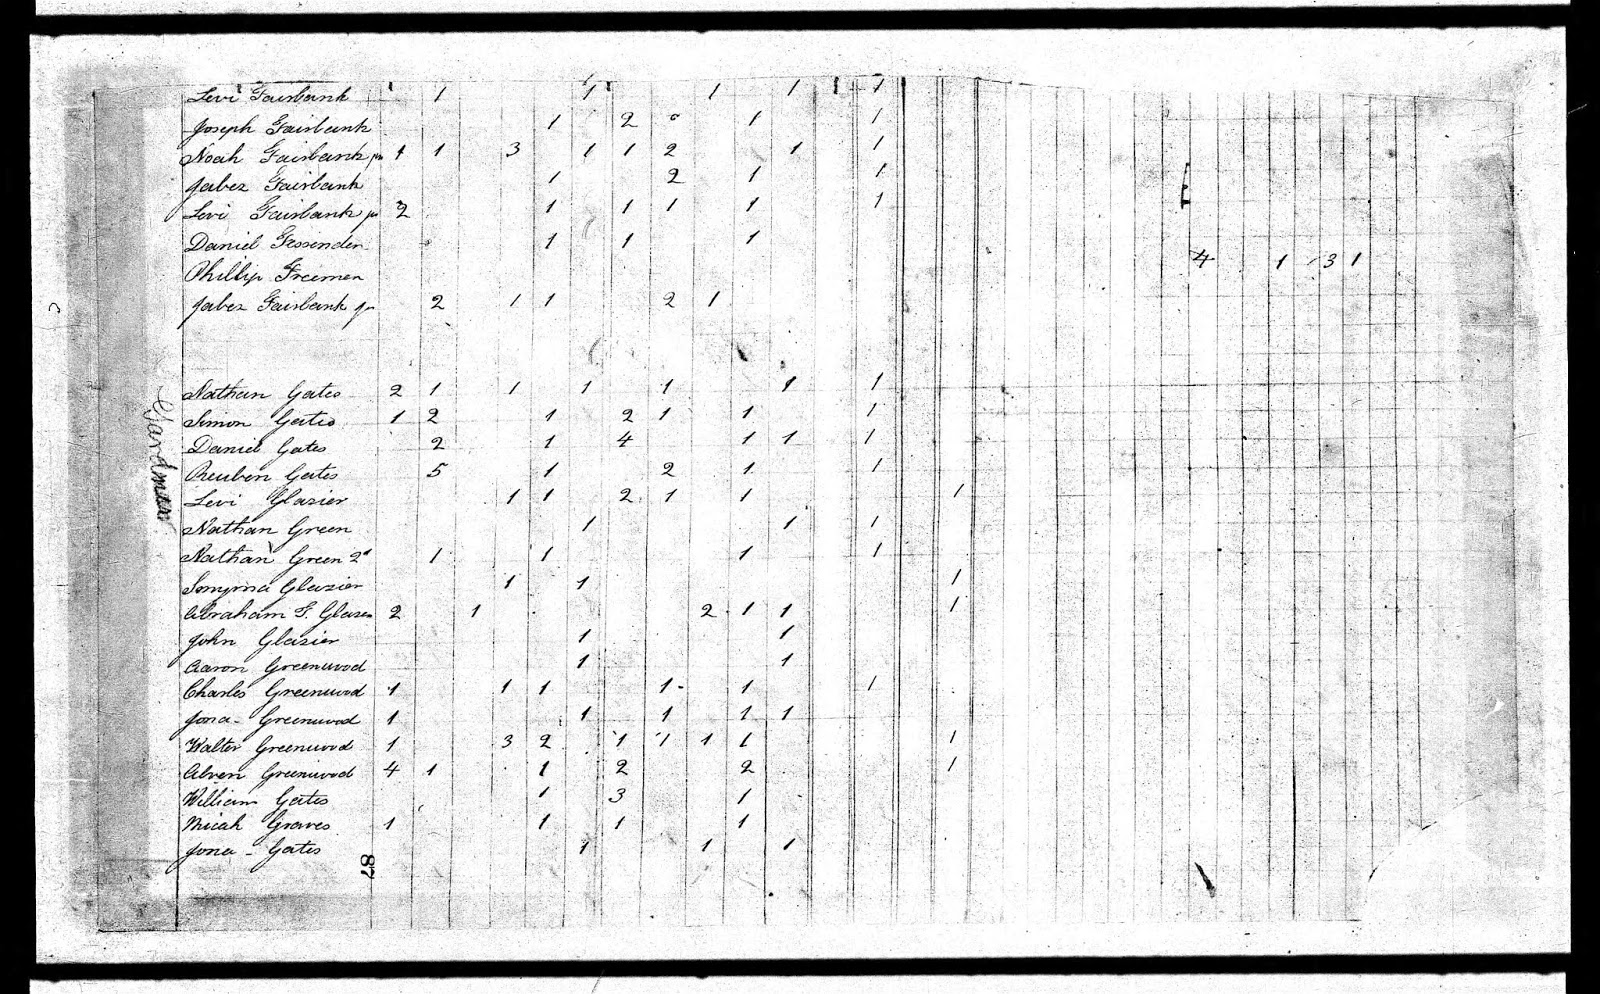 Levi Fairbank 1 1 1 1 1 1
Joseph Fairbank 1 2 1 1
Noah Fairbank jr 1 1 3 1 1 2 1 1
Jabez Fairbank 1 2 1 1
Levi Fairbank jr 2 1 1 1 1 1
Daniel Fessenden 1 1 1
Phillip Freeman 4 1 3 1
Jabez Fairbank jr 2 1 1 2 1
Nathan Gates 2 1 1 1 1 1 1
Simon Gates 1 2 1 2 1 1 1
Daniel Gates 2 1 4 1 1 1
Reuben Gates 5 1 2 1 1
Levi Glazier 1 1 2 1 1 1
Nathan Green 1 1 1
Nathan Green 2d 1 1 1 1
Smyrna Glazier 1 1 1
Abraham F. Glazer 2 1 2 1 1 1
John Glazier 1 1
Aaron Greenwood 1 1
Charles Greenwood 1 1 1 1 1 1
Jona- Greenwood 1 1 1 1 1
Walter Greenwood 1 3 2 1 1 1 1 1
Alven Greenwood 4 1 1 2 2 1
William Gates 1 3 1
Micah Graves 1 1 1 1
Jona- Gates 1 1 1
87